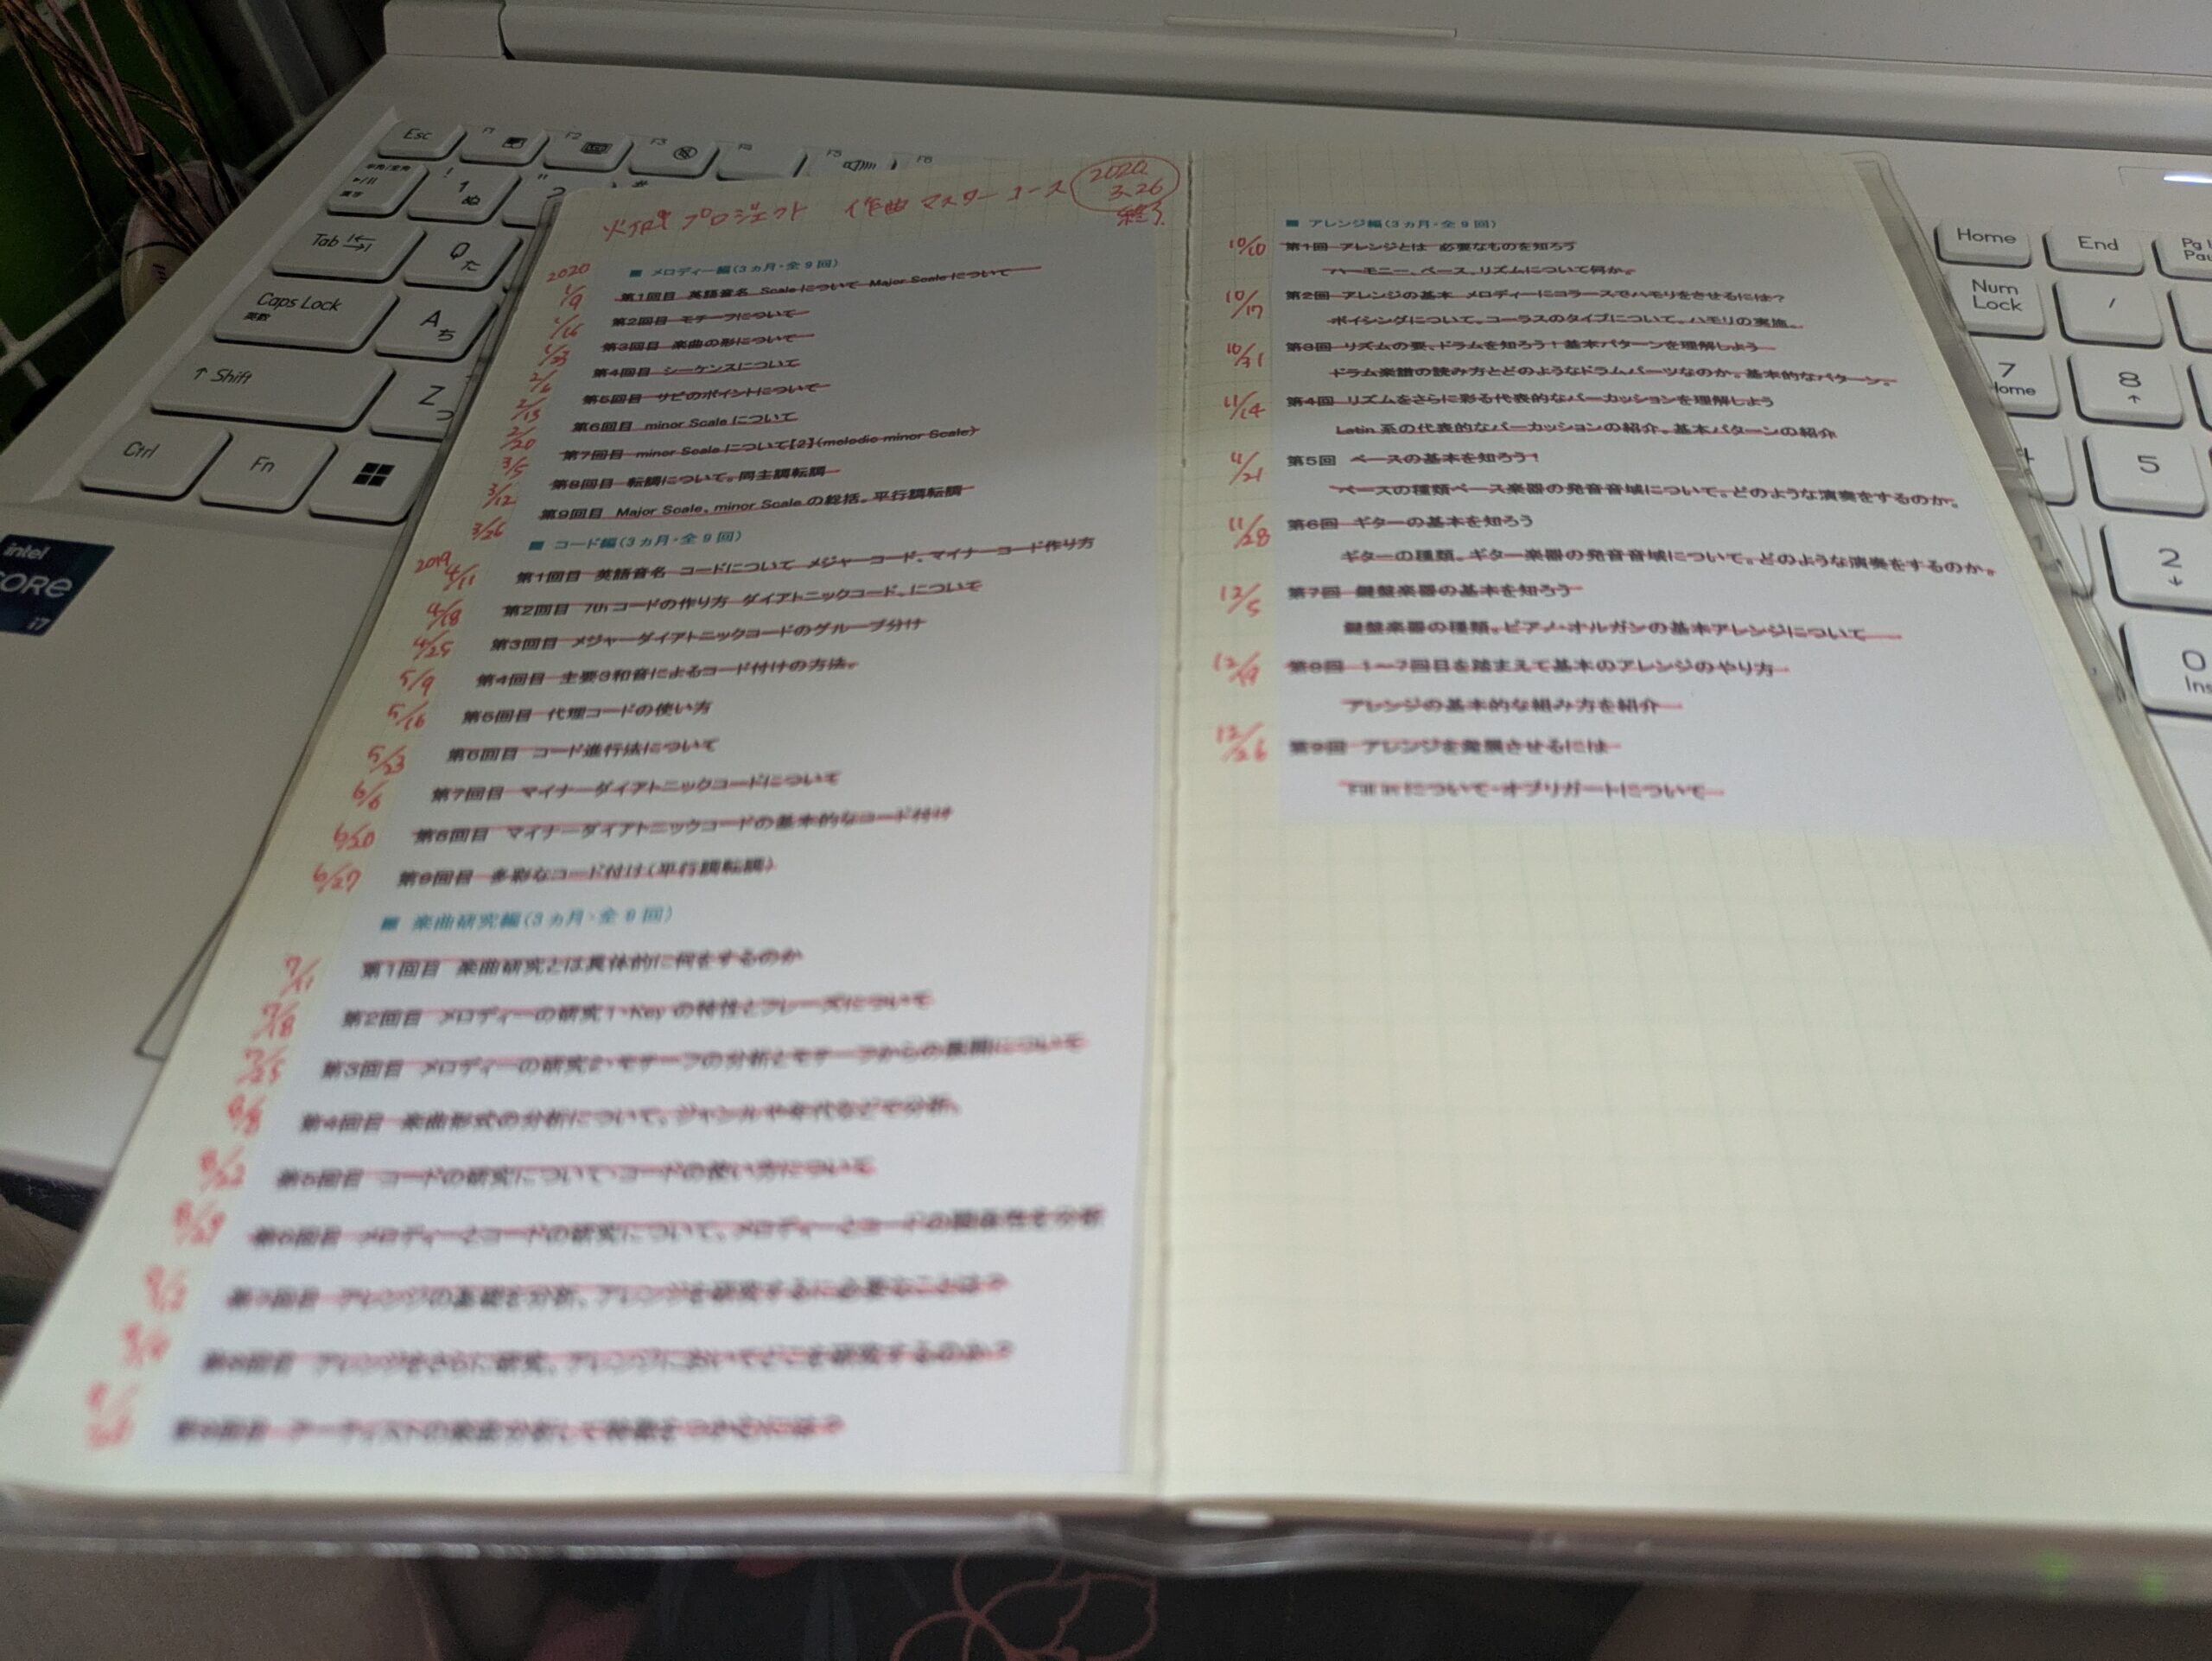 プロジェクト 作曲マスターコース
2020
3.26
終了
2020
■ メロディー編(3ヵ月・全9回)
1/9 第1回目 英語音名 Scaleについて Major Scaleについて
1/16 第2回目 モチーフについて
1/23 第3回目 楽曲の形について
2/6 第4回目 シーケンスについて
2/13 第5回目 サビのポイントについて
2/20 第6回目 minor Scaleについて
3/5 第7回目 minor Scaleについて【2】(melodic minor Scale)
3/12 第8回目 転調について。同主調転調
3/26 第9回目 Major Scale、minor Scaleの総括。平行調転調
■ コード編(3ヵ月・全9回)
2019
4/11 第1回目 英語音名 コードについて メジャーコード、マイナーコード作り方
4/18 第2回目 7thコードの作り方 ダイアトニックコード。について
4/25 第3回目 メジャーダイアトニックコードのグループ分け
5/9 第4回目 主要3和音によるコード付けの方法。
5/16 第5回目 代理コードの使い方
5/23 第6回目 コード進行法について
6/6 第7回目 マイナーダイアトニックコードについて
6/20 第8回目 マイナーダイアトニックコードの基本的なコード付け
6/27 第9回目 多彩なコード付け(平行調転調)
■ 楽曲研究編(3ヵ月・全9回)
7/11 第1回目 楽曲研究とは具体的に何をするのか
7/18 第2回目 メロディーの研究1・Keyの特性とフレーズについて
7/25 第3回目 メロディーの研究2・モチーフの分析とモチーフからの展開について
8/8 第4回目 楽曲形式の分析について。ジャンルや年代などで分析。
8/22 第5回目 コードの研究について・コードの使い方について
8/29 第6回目 メロディーとコードの研究について。メロディーとコードの関係性を分析
第7回目 アレンジの基礎を分析。アレンジを研究するに必要なことは?
第8回目 アレンジをさらに研究。アレンジにおいてどこを研究するのか?
第9回目 アーティストの楽曲分析して特徴をつかむには?
■ アレンジ編(3ヵ月・全9回)
10/10 第1回 アレンジとは 必要なものを知ろう
ハーモニー、ベース、リズムについて何か。
10/17 第2回 アレンジの基本 メロディーにコーラスでハモリをさせるには?
ボイシングについて。コーラスのタイプについて。ハモリの実施。
10/31 第3回 リズムの要、ドラムを知ろう!基本パターンを理解しよう
ドラム楽譜の読み方とどのようなドラムパーツなのか。基本的なパターン。
11/14 第4回 リズムをさらに彩る代表的なパーカッションを理解しよう
Latin系の代表的なパーカッションの紹介。基本パターンの紹介
11/21 第5回 ベースの基本を知ろう!
ベースの種類ベース楽器の発音音域について。どのような演奏をするのか。
11/28 第6回 ギターの基本を知ろう
ギターの種類。ギター楽器の発音音域について。どのような演奏をするのか。
12/5 第7回 鍵盤楽器の基本を知ろう
鍵盤楽器の種類。ピアノ・オルガンの基本アレンジについて
12/19 第8回 1〜7回目を踏まえて基本のアレンジのやり方
アレンジの基本的な組み方を紹介
12/26 第9回 アレンジを発展させるには
Fill inについて・オブリガートについて
Esc
F1
F2
F3
F4
F5
F6
半角/全角
漢字
1 ぬ
Tab
Q た
Caps Lock
英数
A ち
↑ Shift
Z つ
Ctrl
Fn
intel
CORE
i7
Home
End
Num
Lock
/
7
8
5
2
0
Ins